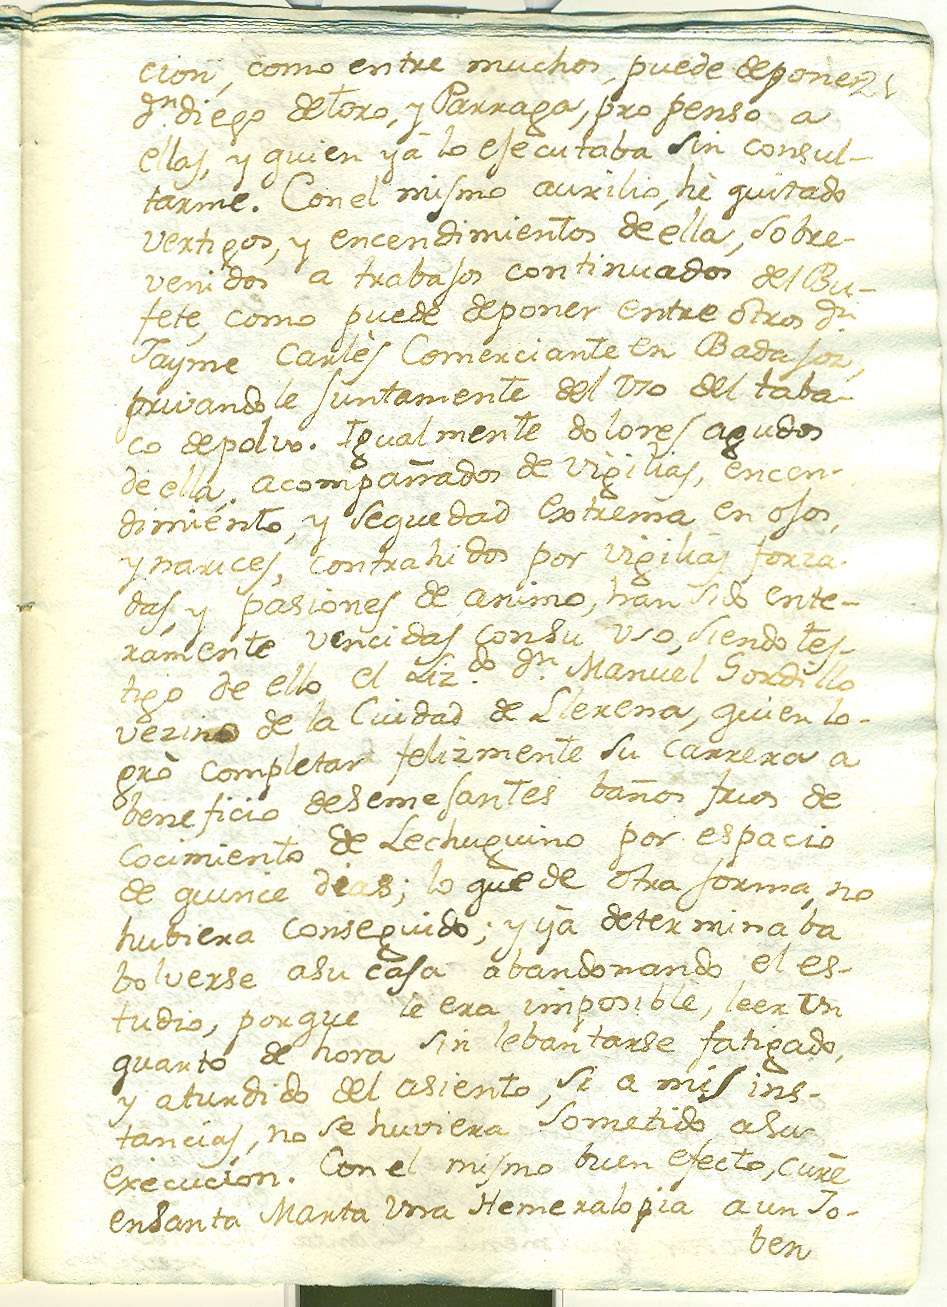 cion, como entre muchos, puede deponer 21
dn. diego de toro, y Parraga, propenso a
ellas, y quien yà lo esecutaba sin consul-
tarme. Con el mismo auxilio, hè quitado
vertigos, y encendimientos de ella, sobre-
venidos a trabasos continuados del Bu-
fete, como puede deponer entre otros dn.
Jayme Carlès Comerciante en Badasoz,
privandole suntamente del uso del taba-
co de polvo. Igualmente dolores agudos
de ella, acompañados de vigilias, encen-
dimiento, y sequedad extrema en osos,
y narices, contrahidos por vigilias forza-
das, y pasiones de animo, han sido ente-
ramente vencidas con su uso, siendo tes-
tigo de ello el Liz.do dn. Manuel Gordillo
vezino de la Ciudad de Llerena, quien lo-
grò completar felizmente su carrera a
beneficio de semesantes baños frios de
Cocimiento de Lechuguino por espacio
de quince dias; lo que de otra forma, no
hubiera conseguido; y yà determinaba
bolverse a su casa abandonando el es-
tudio, porque le era imposible, leer un
quarto de hora sin lebantarse fatigado,
y aturdido del asiento, si a mis ins-
tancias, no se huviera sometido a su
execucion. Con el mismo buen efecto, curè
en Santa Marta una Hemeralopia a un Jo-
ben